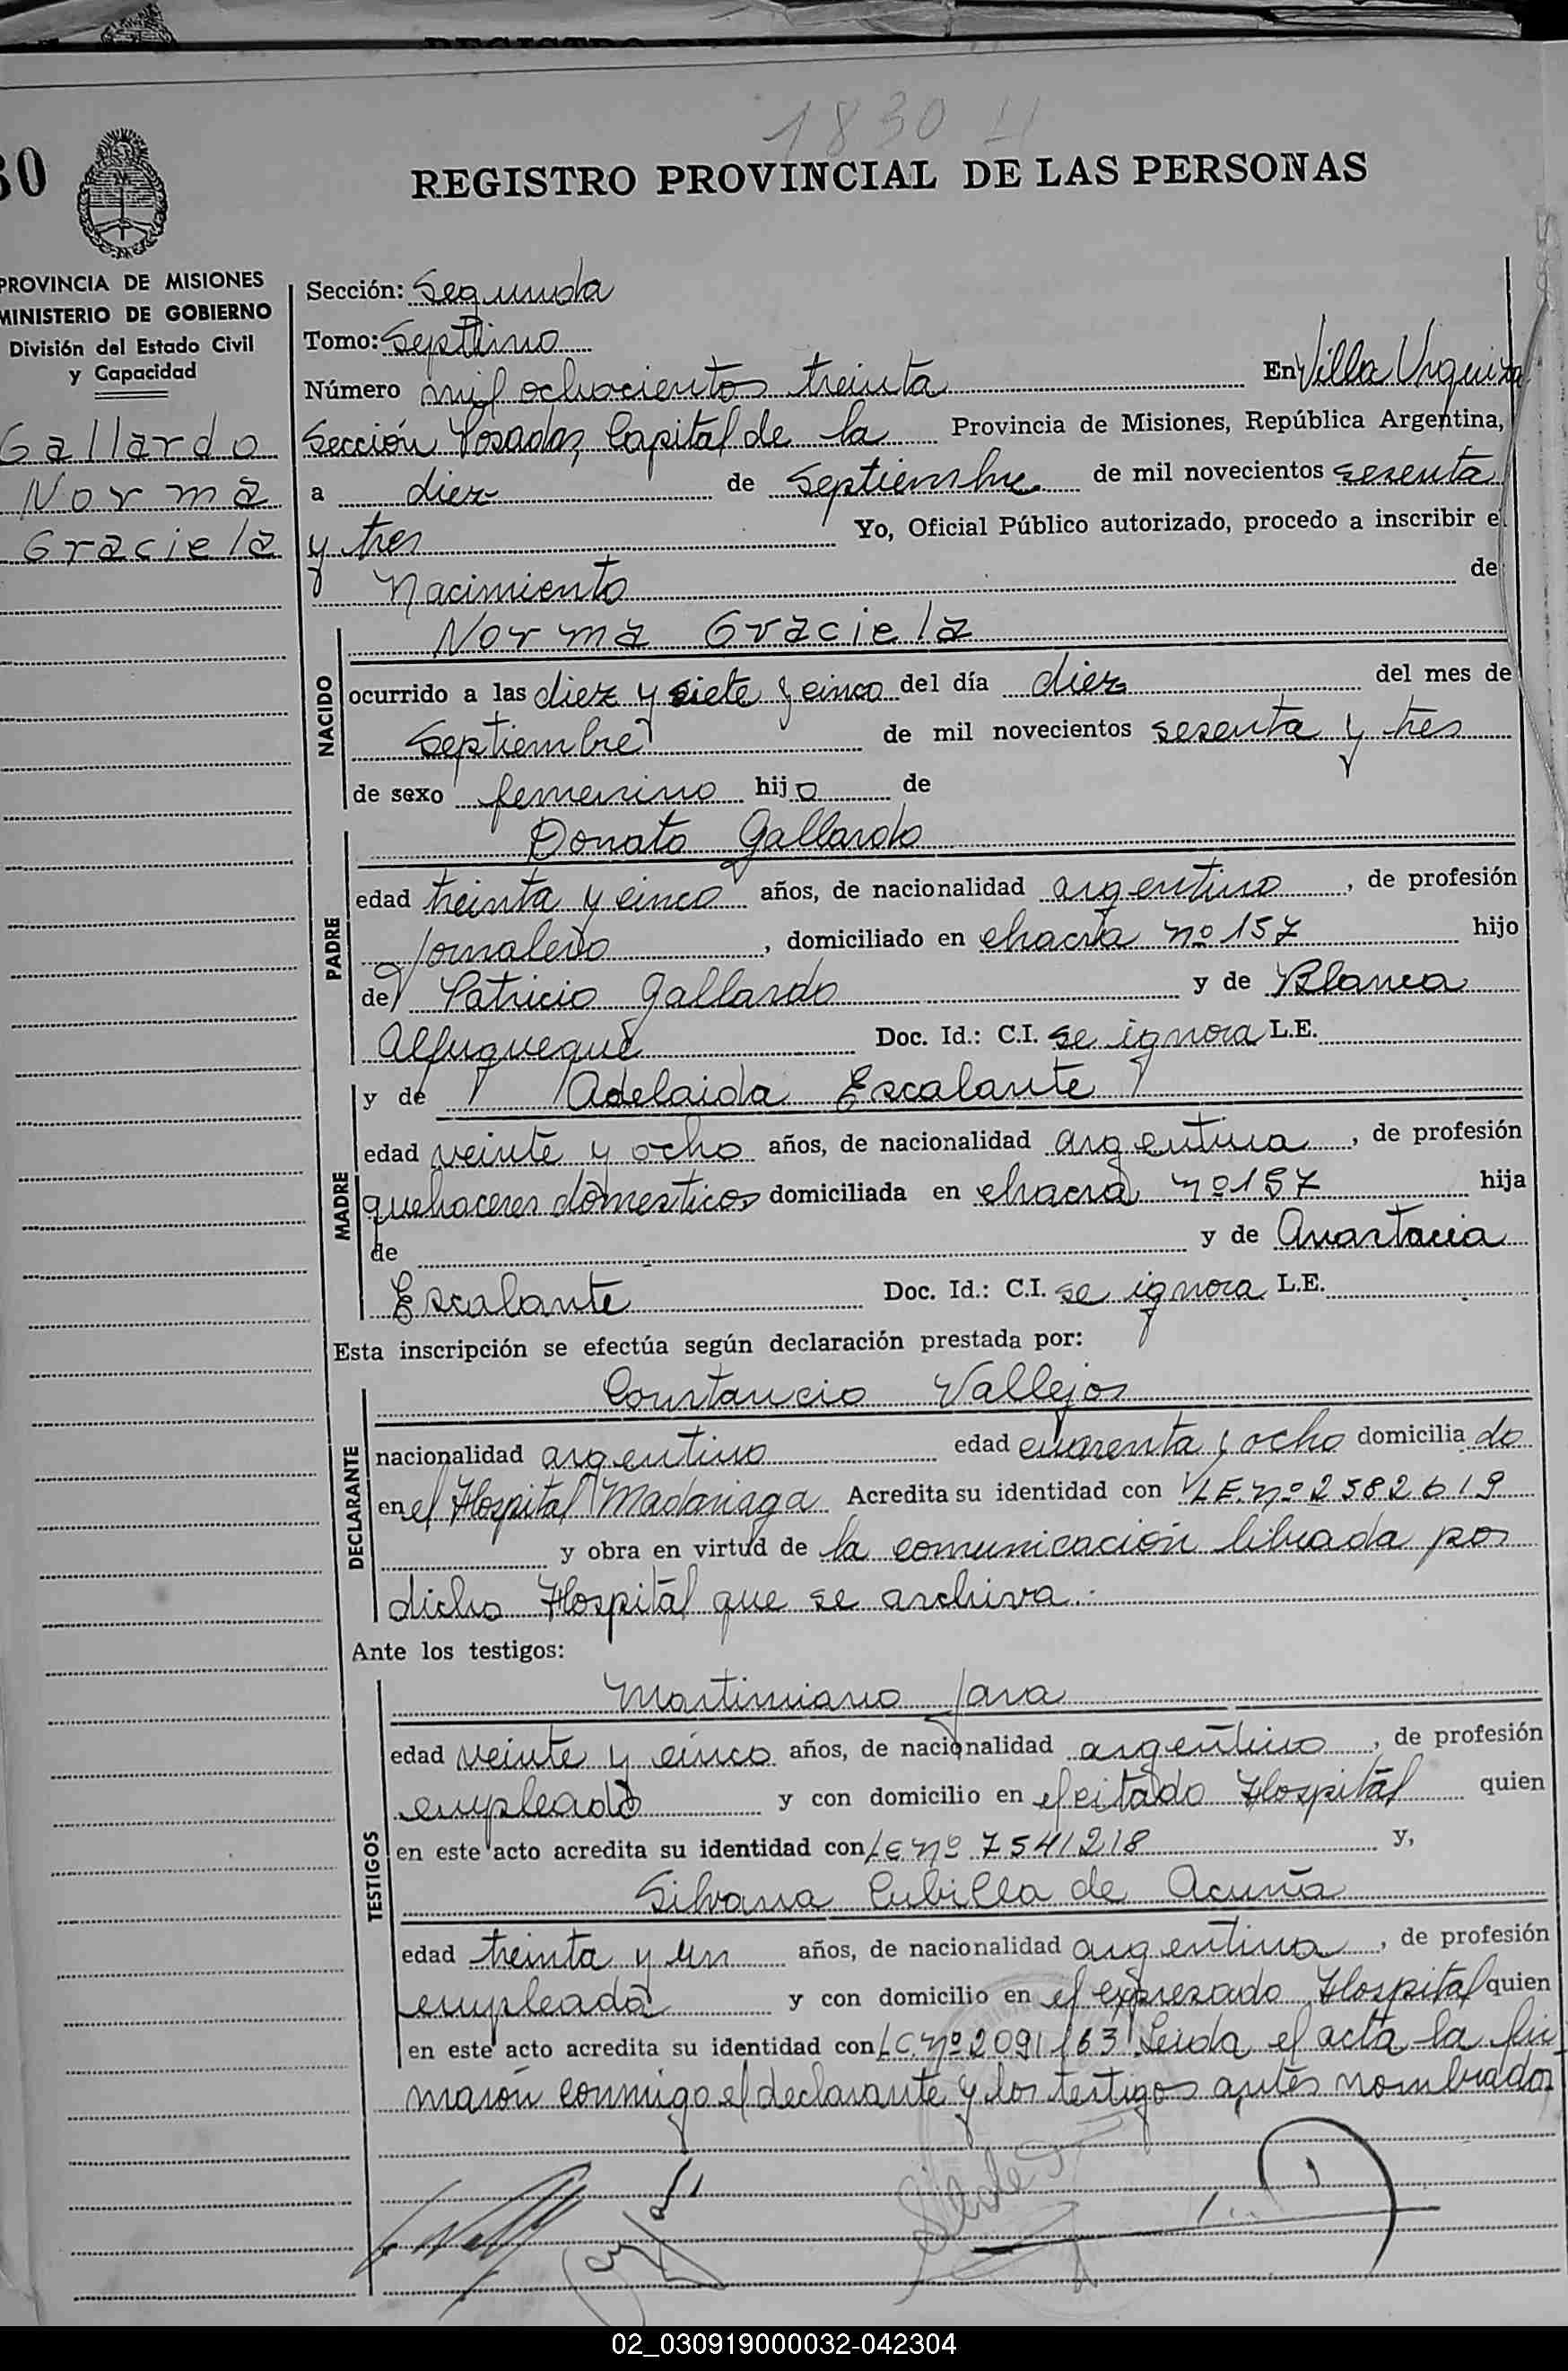 1830
30
REGISTRO PROVINCIAL DE LAS PERSONAS
PROVINCIA DE MISIONES
MINISTERIO DE GOBIERNO
División del Estado Civil
y Capacidad
Gallardo
Norma
Graciela
Sección: Segunda
Tomo: Septimo
Número mil ochocientos treinta En Villa Urquiza
Sección Posadas, Capital de la Provincia de Misiones, República Argentina,
a diez de Septiembre de mil novecientos sesenta
y tres Yo, Oficial Público autorizado, procedo a inscribir el
Nacimiento de
NACIDO
Norma Graciela
ocurrido a las diez y siete y cinco del día diez del mes de
Septiembre de mil novecientos sesenta y tres
de sexo femenino hijo de
PADRE
Donato Gallardo
edad treinta y cinco años, de nacionalidad argentino, de profesión
Jornalero, domiciliado en chacra nº 157 hijo
de Patricio Gallardo y de Blanca
Alfuqueque Doc. Id.: C.I. se ignora L.E.
y de Adelaida Escalante
MADRE
edad veinte y ocho años, de nacionalidad argentina, de profesión
quehaceres domesticos domiciliada en chacra nº 157 hija
de y de Anastacia
Escalante Doc. Id.: C.I. se ignora L.E.
Esta inscripción se efectúa según declaración prestada por:
DECLARANTE
Constancio Vallejos
nacionalidad argentino edad cuarenta y ocho domiciliado
en el Hospital Madariaga Acredita su identidad con L.E. nº 2582619
y obra en virtud de la comunicación librada por
dicho Hospital que se archiva.
Ante los testigos:
TESTIGOS
Martimiano Jara
edad veinte y cinco años, de nacionalidad argentino, de profesión
empleado y con domicilio en el citado Hospital quien
en este acto acredita su identidad con L E nº 7541218 y,
Silvana Cubilla de Acuña
edad treinta y un años, de nacionalidad argentina, de profesión
empleada y con domicilio en el expresado Hospital quien
en este acto acredita su identidad con L C. nº 2091163 Leida el acta la fir
maron conmigo el declarante y los testigos antes nombrados
02_030919000032-042304